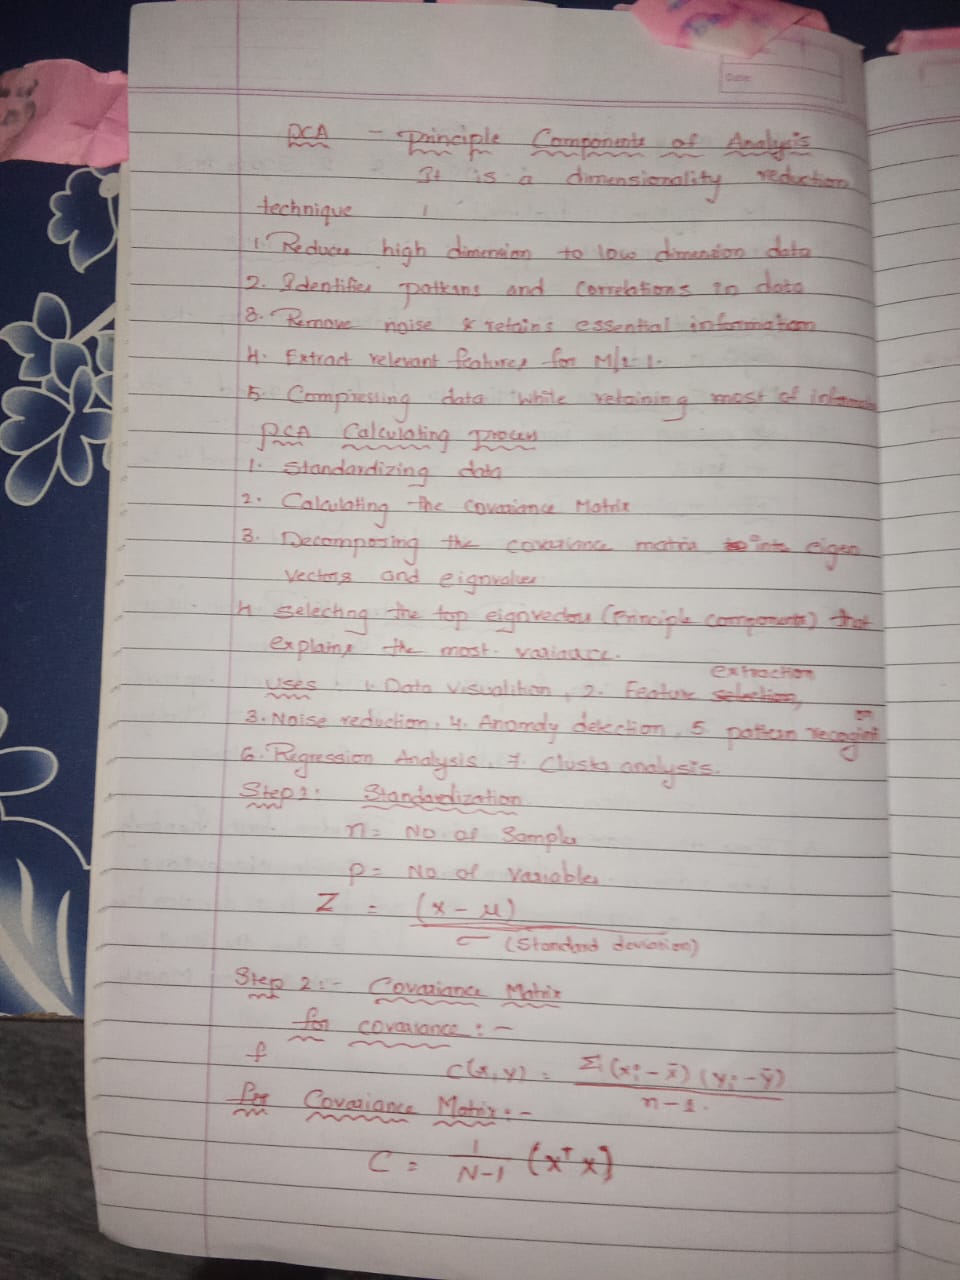 Date:
PCA - Principle Components of Analysis
It is a dimensionality reduction
technique
1. Reduces high dimension to low dimension data
2. Identifies patterns and correlations in data
3. Remove noise & retains essential information
4. Extract relevant features for M/L.
5. Compressing data while retaining most of information
PCA Calculating process
1. Standardizing data
2. Calculating the covariance Matrix
3. Decomposing the covariance matrix into eigen
vectors and eignvalues
4 selecting the top eignvectors (Principle components) that
explains the most variance.
extraction
Uses : 1. Data visualition, 2. Feature selection,
3. Noise reduction, 4. Anomaly detection, 5 pattern recognition
6. Regression Analysis, 7. Cluster analysis.
Step 1: Standardization
n = No of Samples
p = No of variables
Z = (x - μ)
σ (Standard deviation)
Step 2:- Covariance Matrix
for covariance :-
f C(x,y) = Σ(xi - x̄) (yi - ȳ)
n-1.
For Covariance Matrix:-
C = 1/N-1 (xᵀ x)